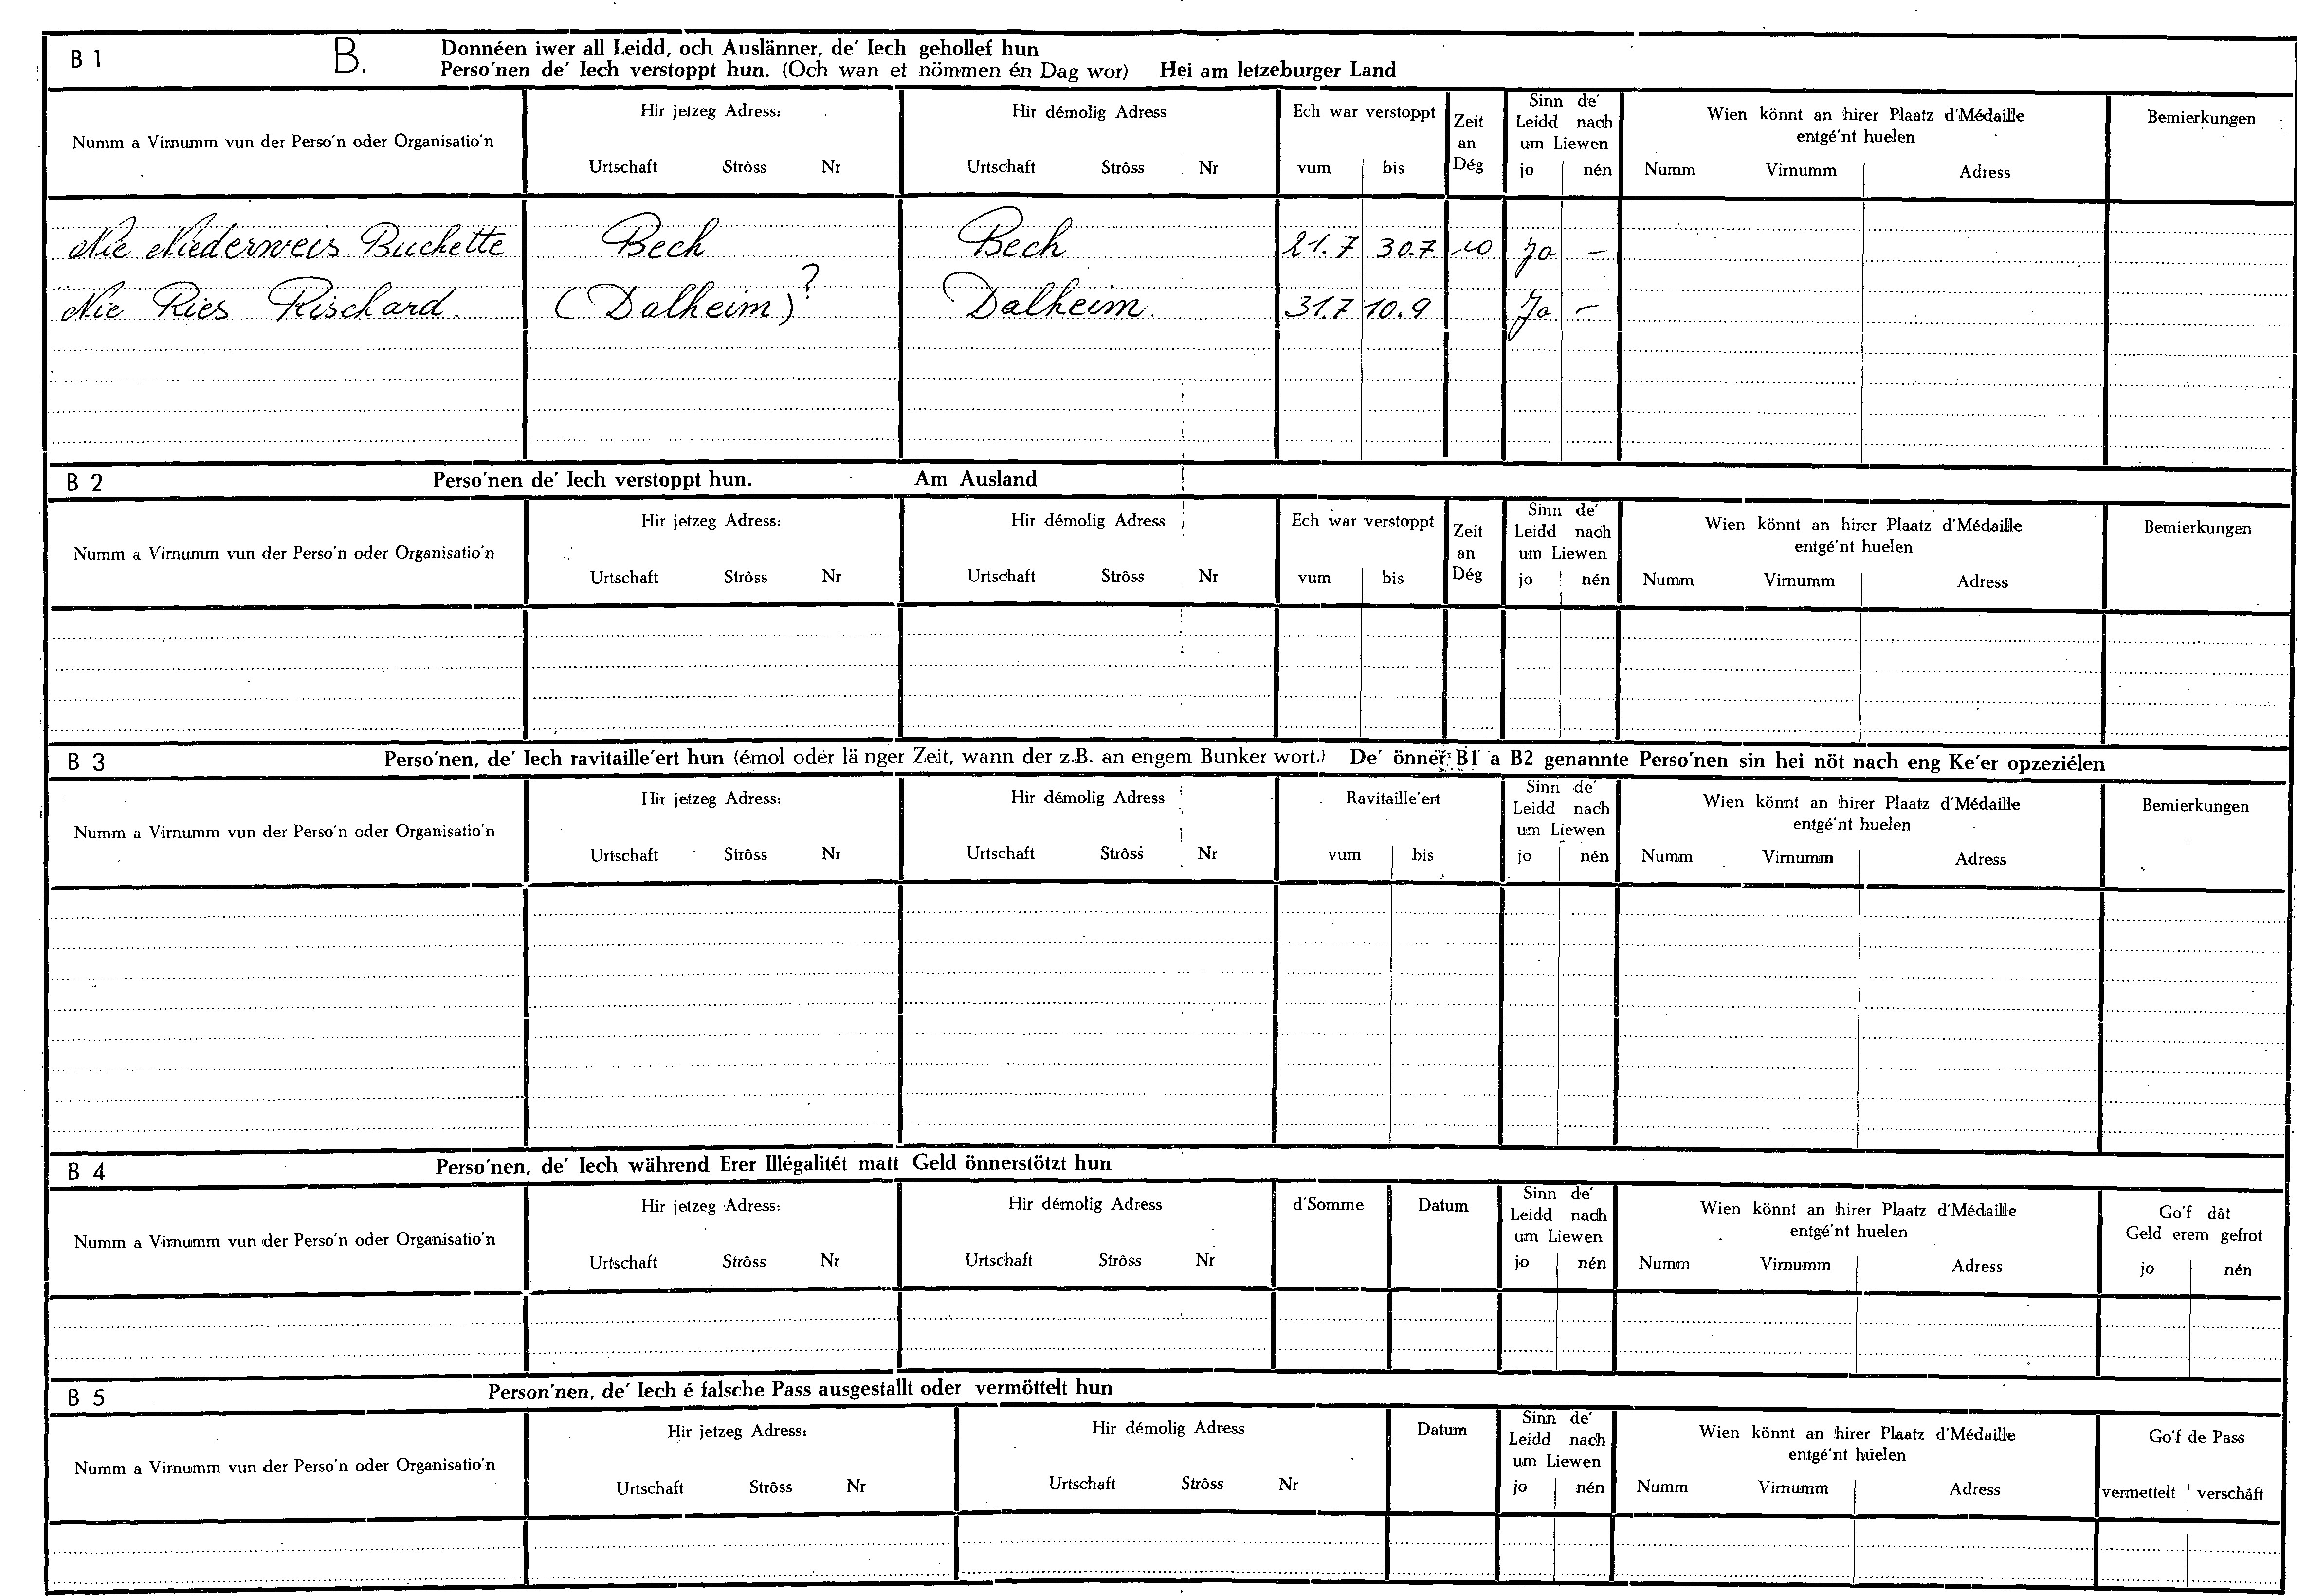 B 1 B. Donnéen iwer all Leidd, och Auslänner, de' Iech gehollef hun
Perso'nen de' Iech verstoppt hun. (Och wan et nömmen én Dag wor) Hei am letzeburger Land
Numm a Virnumm vun der Perso'n oder Organisatio'n
Hir jetzeg Adress:
Urtschaft Strôss Nr
Hir démolig Adress
Urtschaft Strôss Nr
Ech war verstoppt
vum bis
Zeit
an
Dég
Sinn de'
Leidd nach
um Liewen
jo nén
Wien könnt an hirer Plaatz d'Médaille
entgé'nt huelen
Numm Virnumm Adress
Bemierkungen
Nic Niederweis Buchette Bech Bech 21.7 30.7 10 Ja –
Nic Ries Rischard. (Dalheim)? Dalheim. 31.7 10.9 Ja –
B 2 Perso'nen de' Iech verstoppt hun. Am Ausland
Numm a Virnumm vun der Perso'n oder Organisatio'n
Hir jetzeg Adress:
Urtschaft Strôss Nr
Hir démolig Adress
Urtschaft Strôss Nr
Ech war verstoppt
vum bis
Zeit
an
Dég
Sinn de'
Leidd nach
um Liewen
jo nén
Wien könnt an hirer Plaatz d'Médaille
entgé'nt huelen
Numm Virnumm Adress
Bemierkungen
B 3 Perso'nen, de' Iech ravitaille'ert hun (émol oder länger Zeit, wann der z.B. an engem Bunker wort.) De' önner B1 a B2 genannte Perso'nen sin hei nöt nach eng Ke'er opzeziélen
Numm a Virnumm vun der Perso'n oder Organisatio'n
Hir jetzeg Adress:
Urtschaft Strôss Nr
Hir démolig Adress
Urtschaft Strôss Nr
Ravitaille'ert
vum bis
Sinn de'
Leidd nach
um Liewen
jo nén
Wien könnt an hirer Plaatz d'Médaille
entgé'nt huelen
Numm Virnumm Adress
Bemierkungen
B 4 Perso'nen, de' Iech während Erer Illégalitét matt Geld önnerstötzt hun
Numm a Virnumm vun der Perso'n oder Organisatio'n
Hir jetzeg Adress:
Urtschaft Strôss Nr
Hir démolig Adress
Urtschaft Strôss Nr
d'Somme
Datum
Sinn de'
Leidd nach
um Liewen
jo nén
Wien könnt an hirer Plaatz d'Médaille
entgé'nt huelen
Numm Virnumm Adress
Go'f dât
Geld erem gefrot
jo nén
B 5 Person'nen, de' Iech é falsche Pass ausgestallt oder vermöttelt hun
Numm a Virnumm vun der Perso'n oder Organisatio'n
Hir jetzeg Adress:
Urtschaft Strôss Nr
Hir démolig Adress
Urtschaft Strôss Nr
Datum
Sinn de'
Leidd nach
um Liewen
jo nén
Wien könnt an hirer Plaatz d'Médaille
entgé'nt huelen
Numm Virnumm Adress
Go'f de Pass
vermettelt verschâft